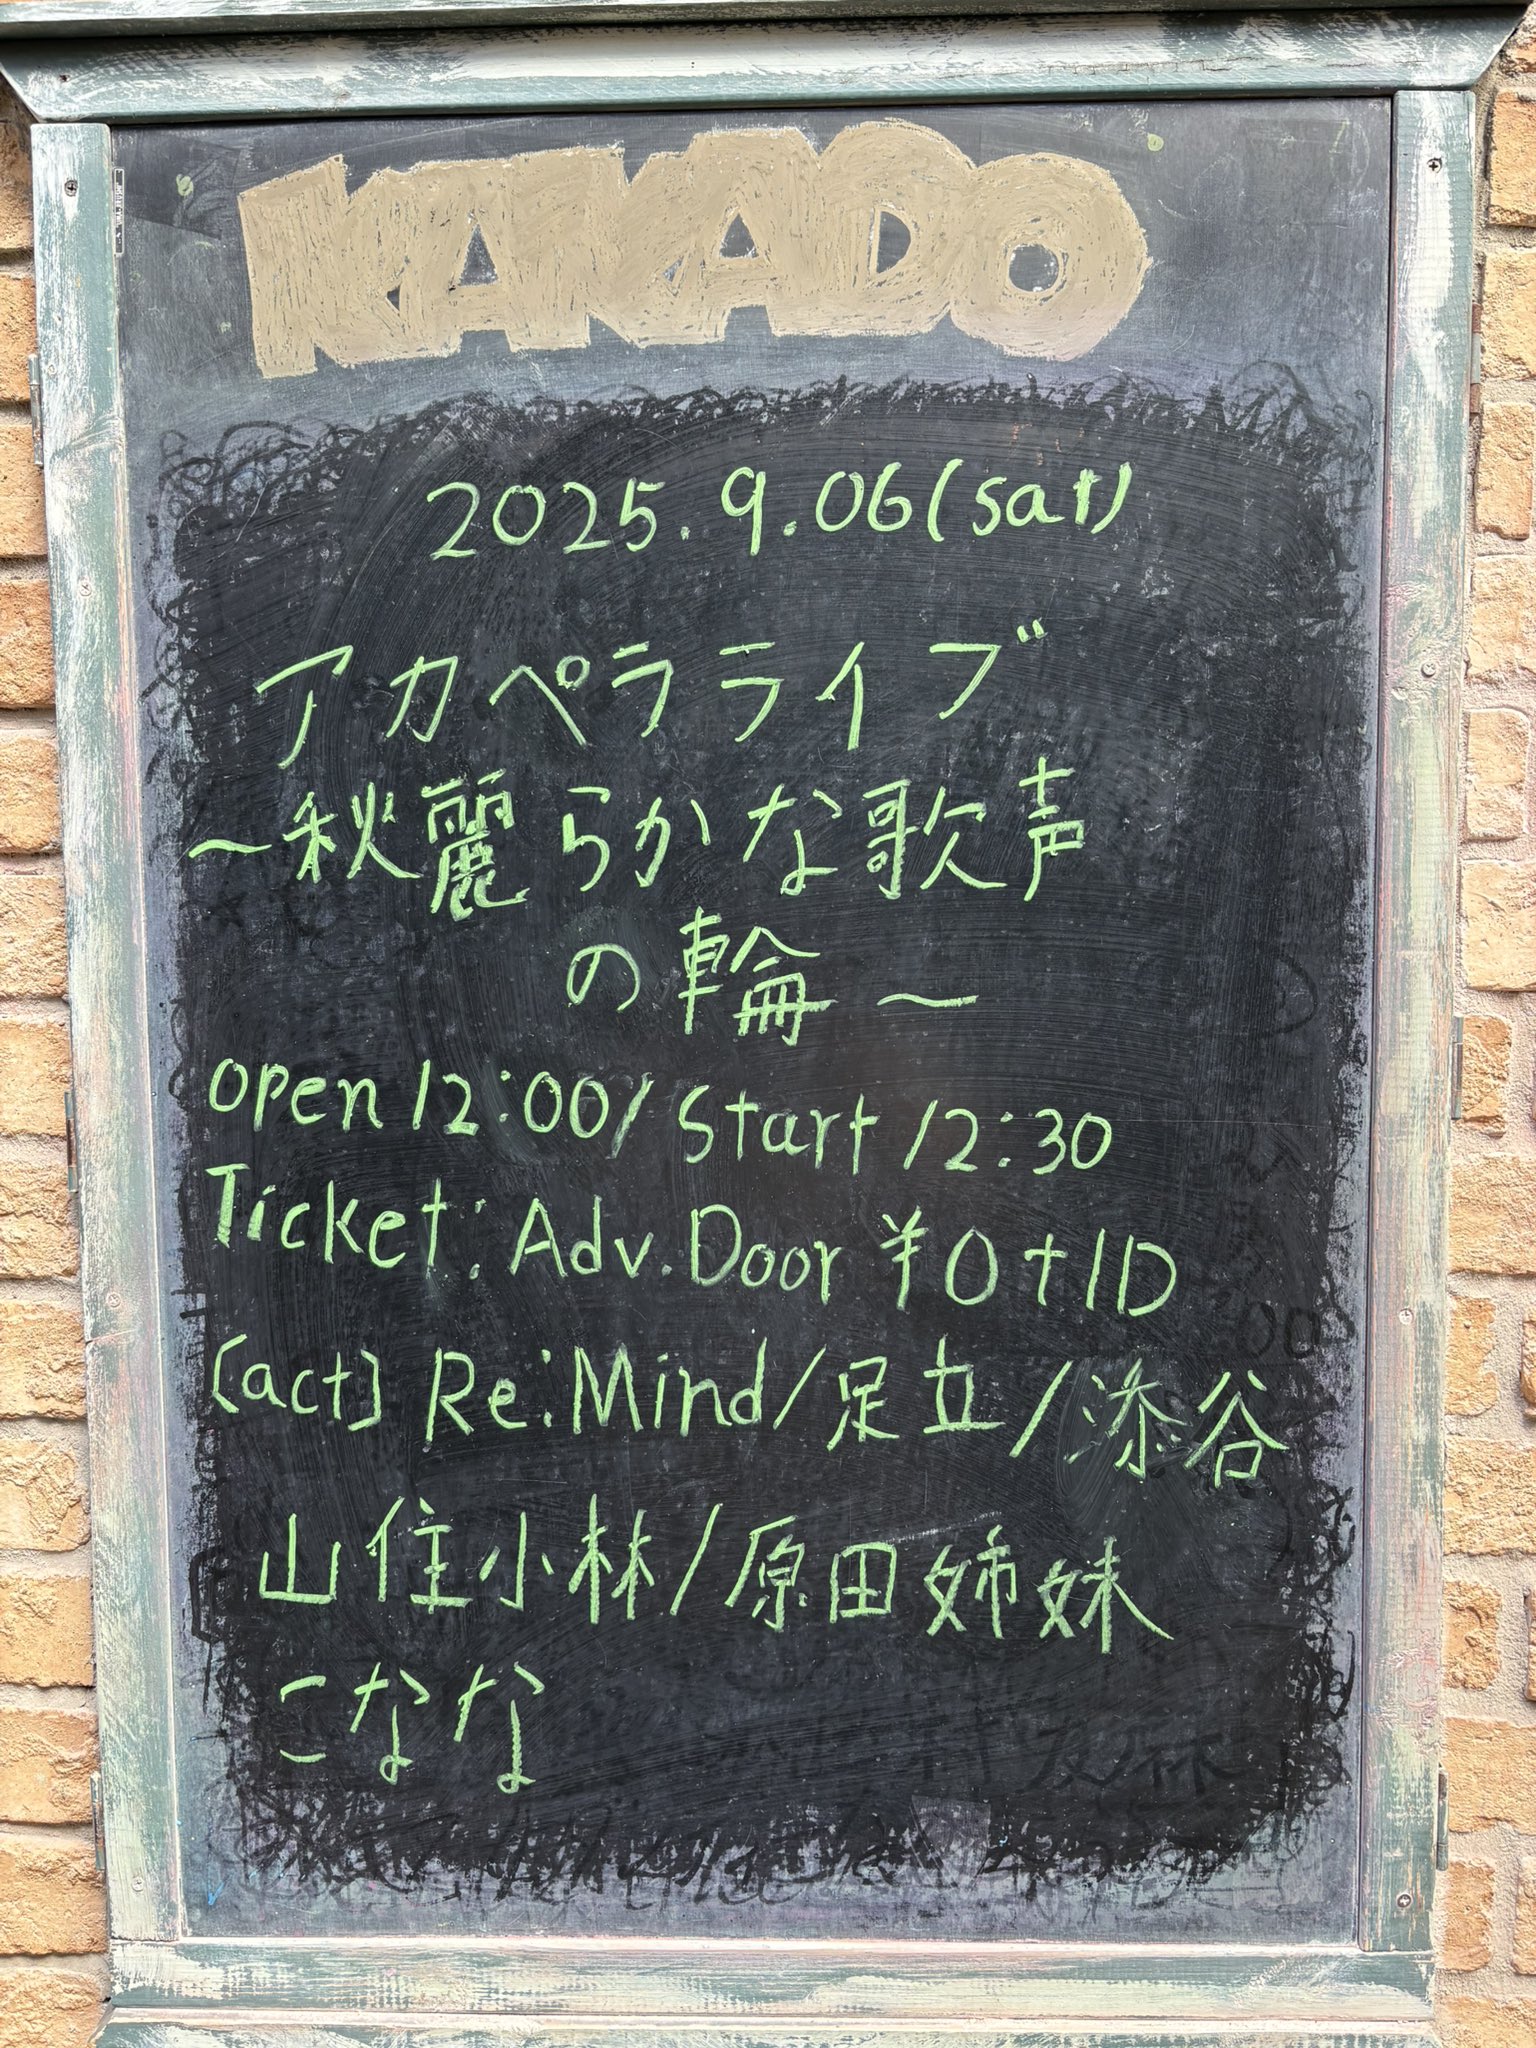 KAKADO
2025.9.06(sat)
アカペラライブ
〜秋麗らかな歌声
の輪〜
open 12:00/Start 12:30
Ticket: Adv.Door ¥0+1D
[act] Re:Mind/足立/添谷
山住小林/原田姉妹
こなな